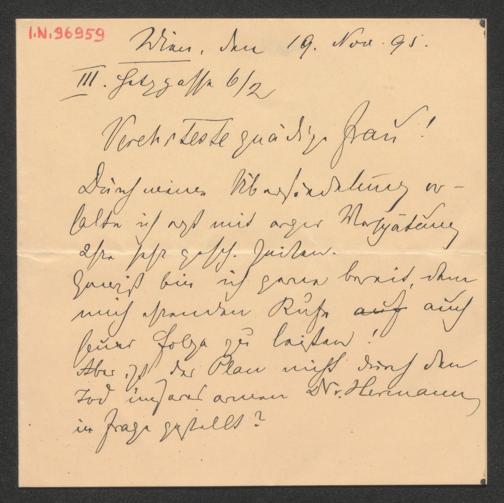 I.N. 96959
Wien, den 19. Nov. 95.
III. Hetzgasse 6/2
Verehrteste gnädige Frau!
Durch meine Übersiedelung er-
halte ich erst mit arger Verspätung
Ihre sehr gesch. Zeilen.
Gewiß bin ich gerne bereit, dem
mich ehrenden Rufe auf auch
heuer Folge zu leisten!
Aber ist der Plan nicht durch den
Tod unseres armen Dr. Hermann
in Frage gestellt?